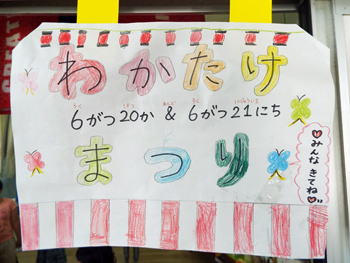 わかたけ
6がつ20か & 6がつ21にち
まつり
みんなきてね